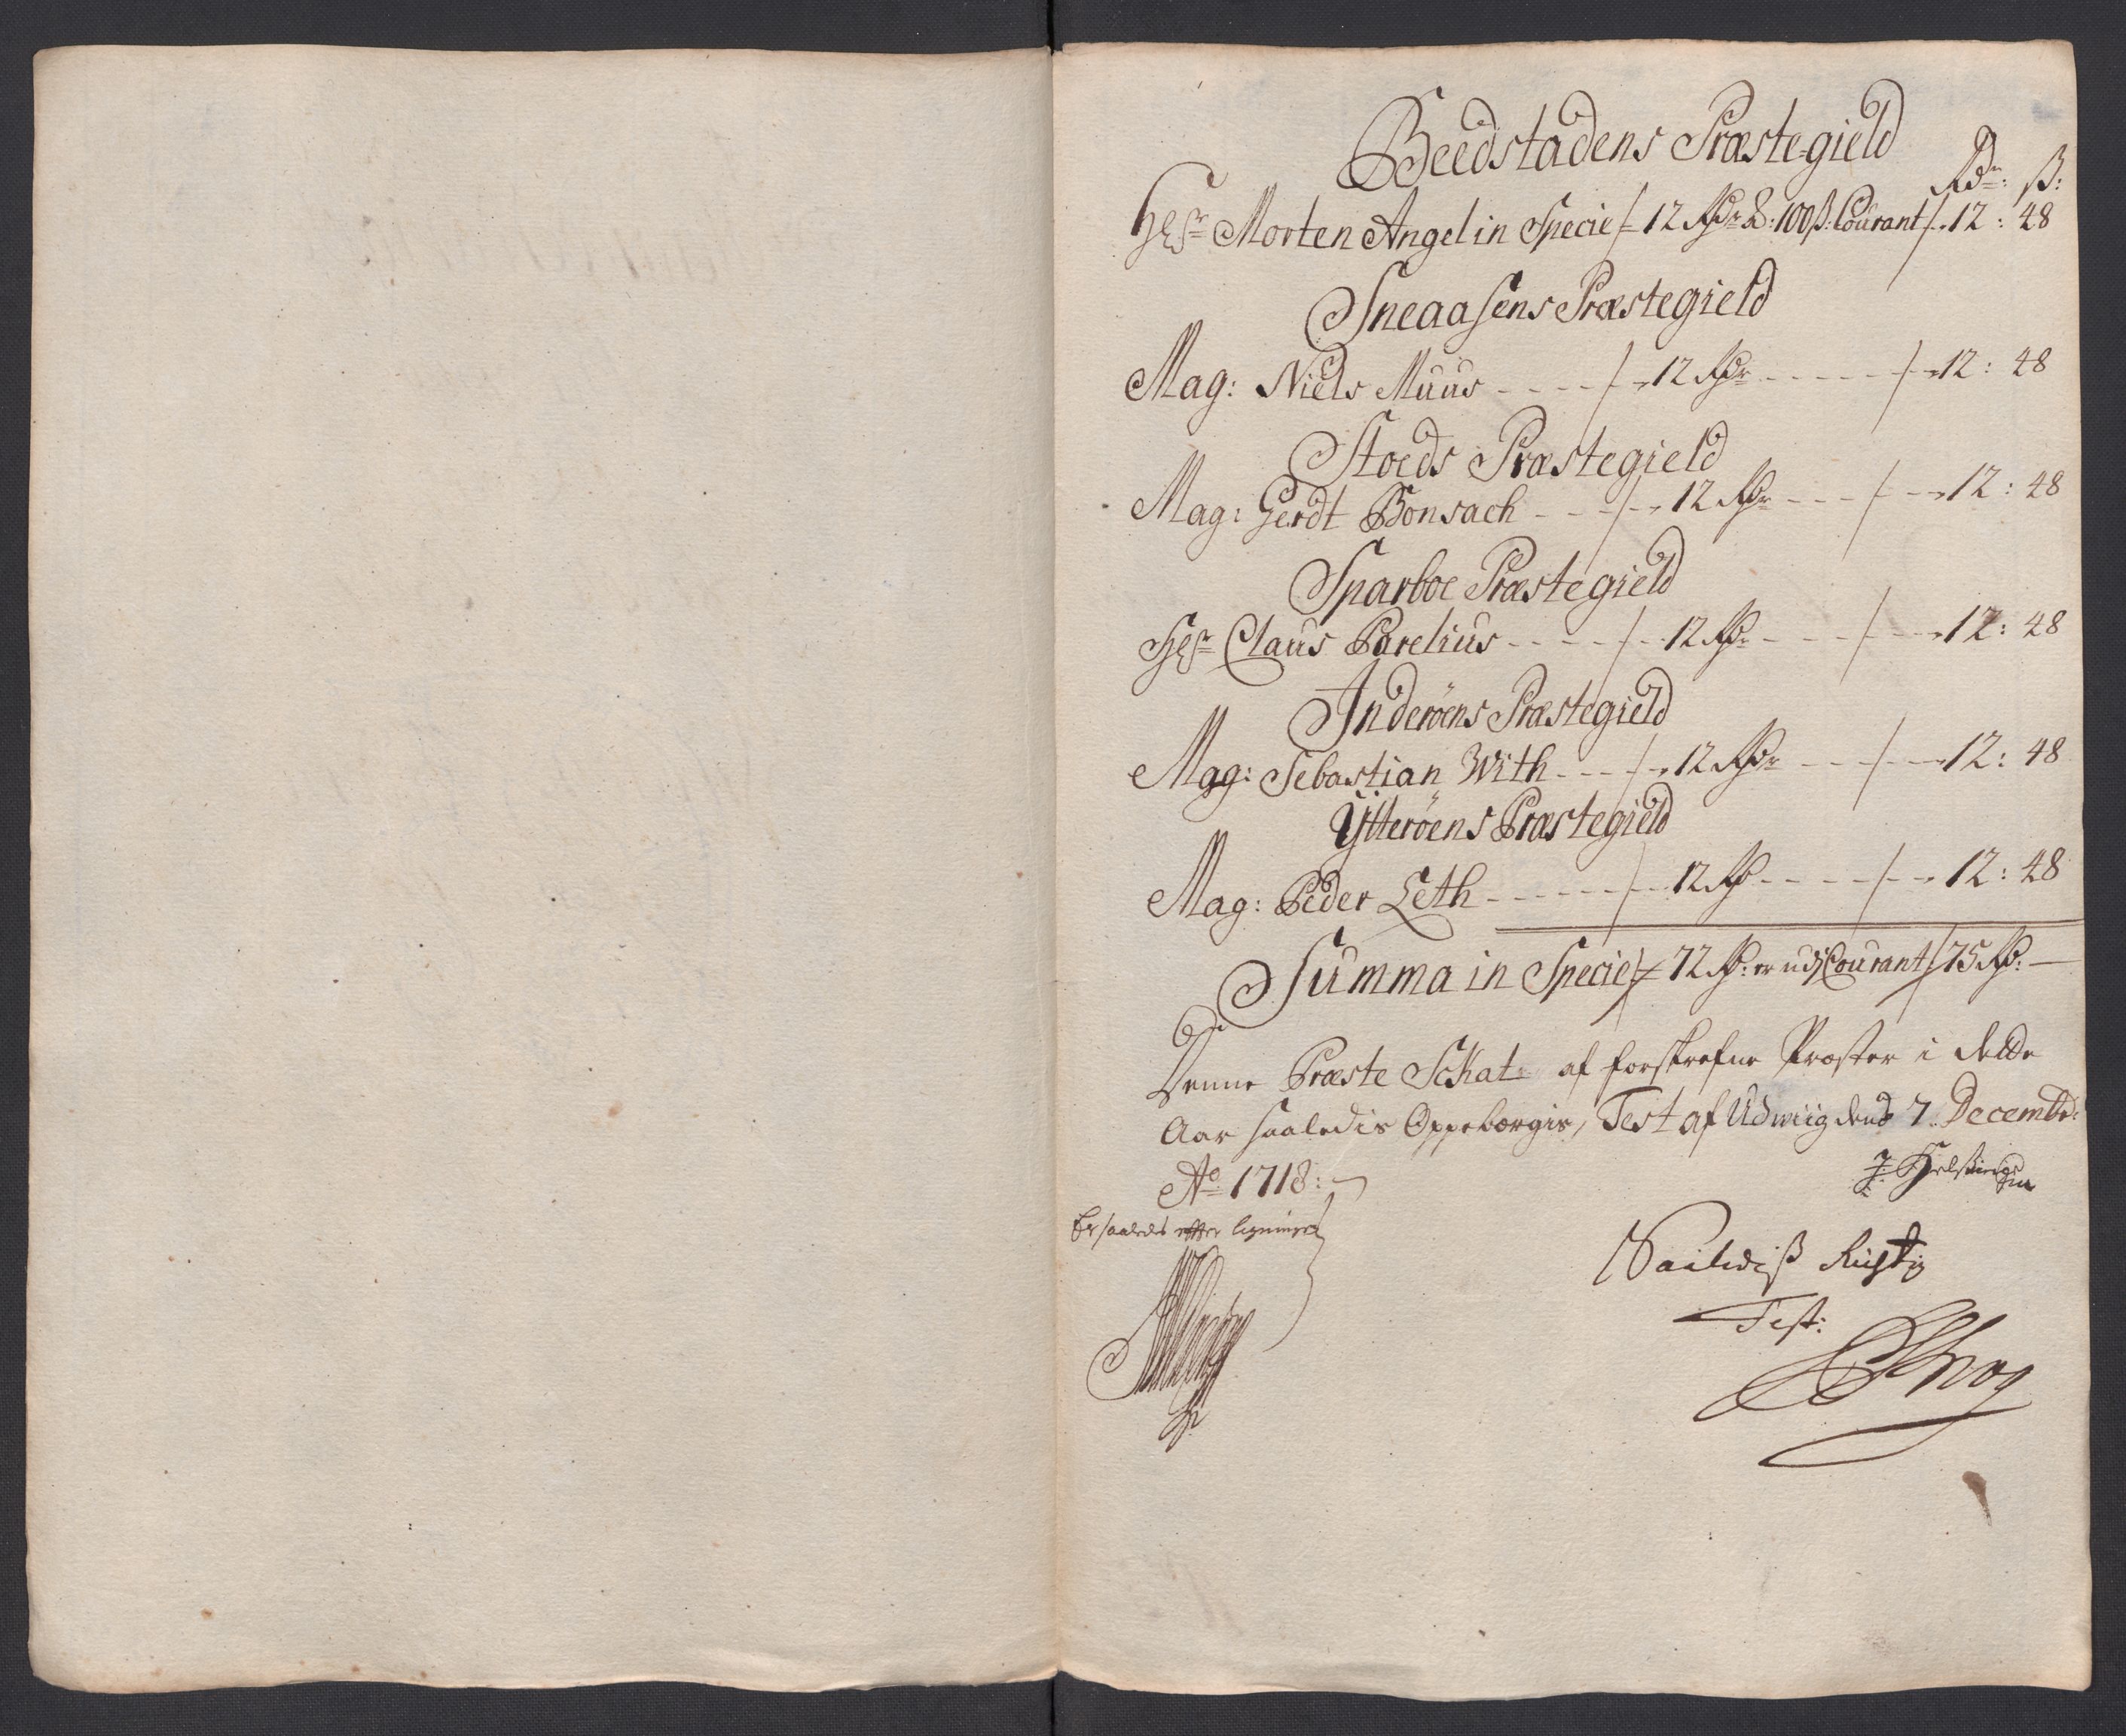 Beedstadens Præste-gield
Rdr: ß:
Hr Morten Angel in Specie 12 Rdr à 100 ß: Courant 12: 48
Sneaasens Præstegield
Mag: Niels Muus - - - - 12 Rdr - - - - 12: 48
Stoeds Præstegield
Mag: Gerdt Bonsach - - - 12 Rdr - - - 12: 48
Sparboe Præstegield
Hr Claus Parelius - - - - 12 Rdr - - - 12: 48
Inderöens Præstegield
Mag: Sebastian With - - - 12 Rdr - - - 12: 48
Ÿtteröens Præstegield
Mag: Peder Leth - - - - - 12 Rd - - - - 12: 48
Summa in Specie 72 Rd: er udj Courant 75 Rd: —
Denne Præste Schat af forskrefne Præster i dette
Aar saaledis Oppebærgis, Test af Udwiig dend 7 Decembr:
Ao 1718:
Er saaledes efter
Saalediß Rigtig
Test: